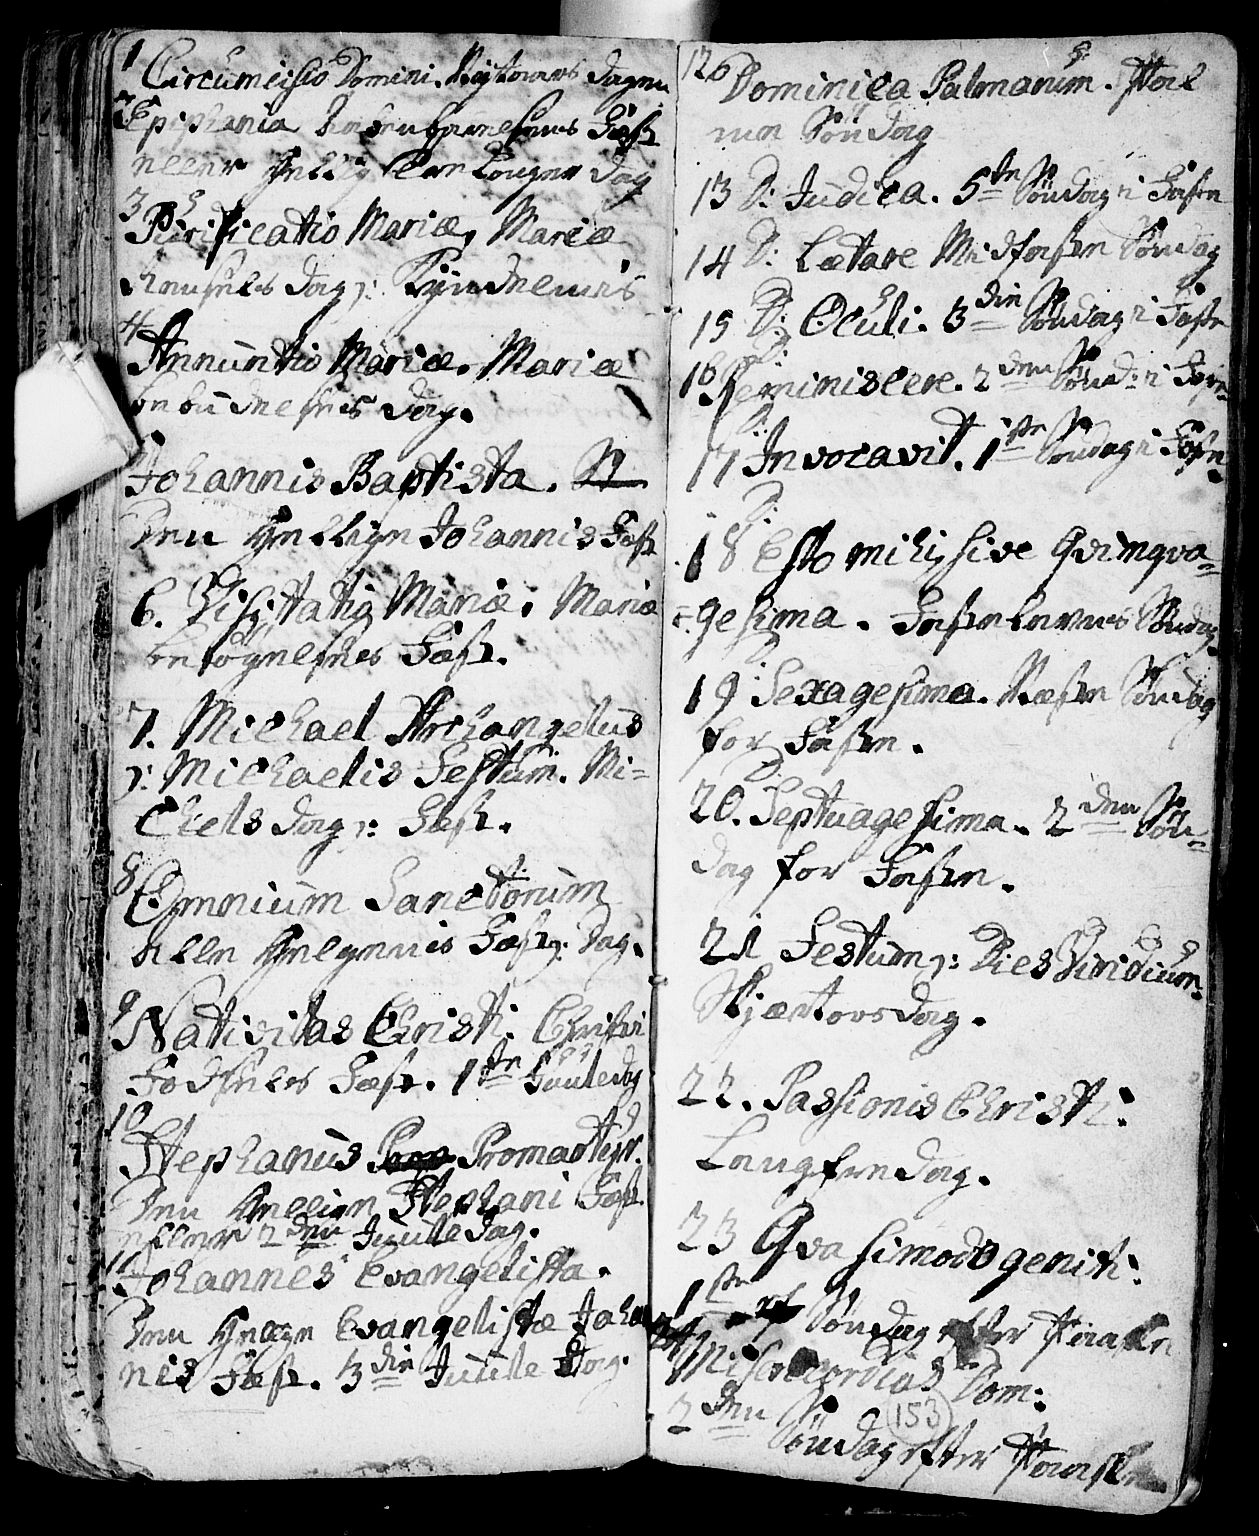 1 Circumcisio Domini. Nytaars dagen
2 Epiphania
eller Hellig tre Konger dag
3 Purificatio Mariæ, Mariæ
Renselses dag ɔ: Kyndelmis
4 Annuntio Mariæ. Mariæ
bebudelses dag.
Johannis Baptista. St
Den Hellige Johannis Fæst
6. Visitatio Mariæ, Mariæ
besögnelses Fæst.
7. Michael Archangelus
ɔ: Michaelis Festum. Mi-
chels dag ɔ: Fæst.
8 Omnium Sanctorum
Alle Helgenis Fæst ɔ: dag.
9 Nativitas Christi. Christi
Födselses Fæst. 1ste Juuledag
10 Stephanus Promartyr.
Den Hellige Stephani Fæst
eller 2den Juule dag.
Johannes Evangelista.
Den Hellige Evangelistæ Johan
nis Fæst. 3die Juule Dag.
12 Dominica Palmarum. Pal
me Söndag
13 D: Judica. 5te Söndag i Fasten
14 D: Lætare Midfasten Söndag
15 D: Oculi. 3die Söndag i Faste
16 D: Reminiscere. 2den Sönd: i Faste
17 D: Invocavit. 1ste Söndag i Fasten
18 D: Esto mihi sive Qvinqva-
gesima. Fastelavns Söndag
19 D: Sexagesima. Næste Söndag
for Fasten.
20. D: Septuagesima. 2den Sön-
dag for Fasten.
21 Festum ɔ: Dies Viridium.
Skjærtorsdag.
22. Passionis Christi:
Langfredag.
23 Qvasimodogeniti:
1ste Söndag efter Paaske
Misericordias Dom:
2den Söndag efter Paaske
153